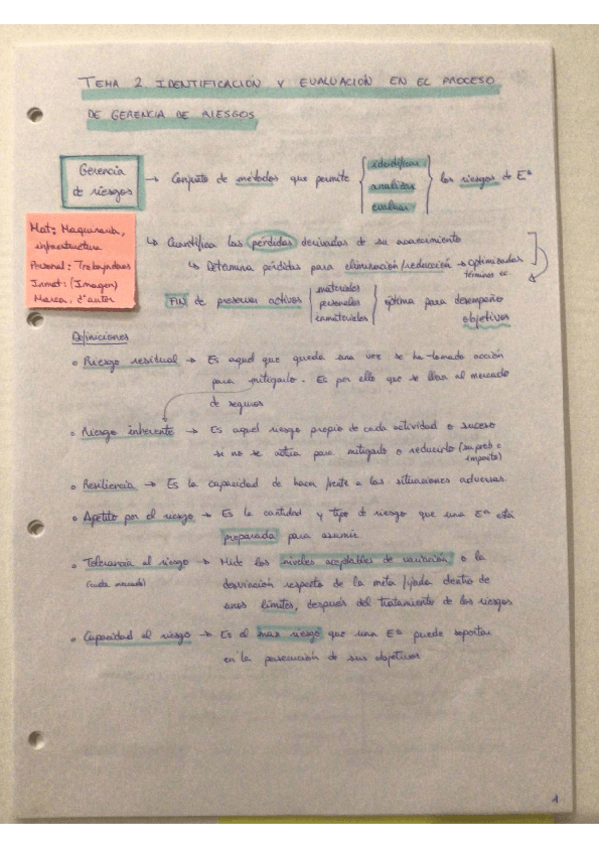 TEMA 2 IDENTIFICACIÓN Y EVALUACIÓN EN EL PROCESO
DE GERENCIA DE RIESGOS
Gerencia
de riesgos
→ Conjunto de métodos que permite
identificar
analizar
evaluar
los riesgos de Eª
Mat: Maquinaria,
infraestructura
Personal: Trabajadores
Inmat: (Imagen)
Marca, dº autor
↳ Cuantifica las pérdidas derivadas de su acaecimiento
↳ Determina pérdidas para eliminación/reducción → Optimizados
términos ec
FIN de preservar activos
materiales
personales
inmateriales
óptima para desempeño
objetivos
Definiciones
• Riesgo residual → Es aquel que queda una vez se ha tomado acción
para mitigarlo. Es por ello que se llevan al mercado
de seguros
• Riesgo inherente → Es aquel riesgo propio de cada actividad o suceso
si no se actúa para mitigarlo o reducirlo (su prob e
impacto)
• Resiliencia → Es la capacidad de hacer frente a las situaciones adversas.
• Apetito por el riesgo → Es la cantidad y tipo de riesgo que una Eª está
preparada para asumir
• Tolerancia al riesgo → Mide los niveles aceptables de variación o la
desviación respecto de la meta fijada dentro de
unos límites, después del tratamiento de los riesgos
• Capacidad al riesgo → Es el max riesgo que una Eª puede soportar
en la persecución de sus objetivos
1